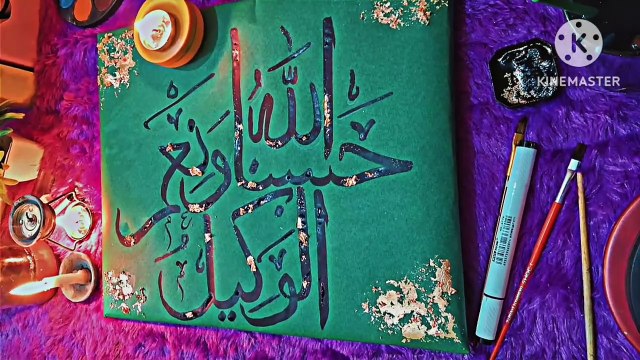 حسبنا الله ونعم الوكيل
KINEMASTER